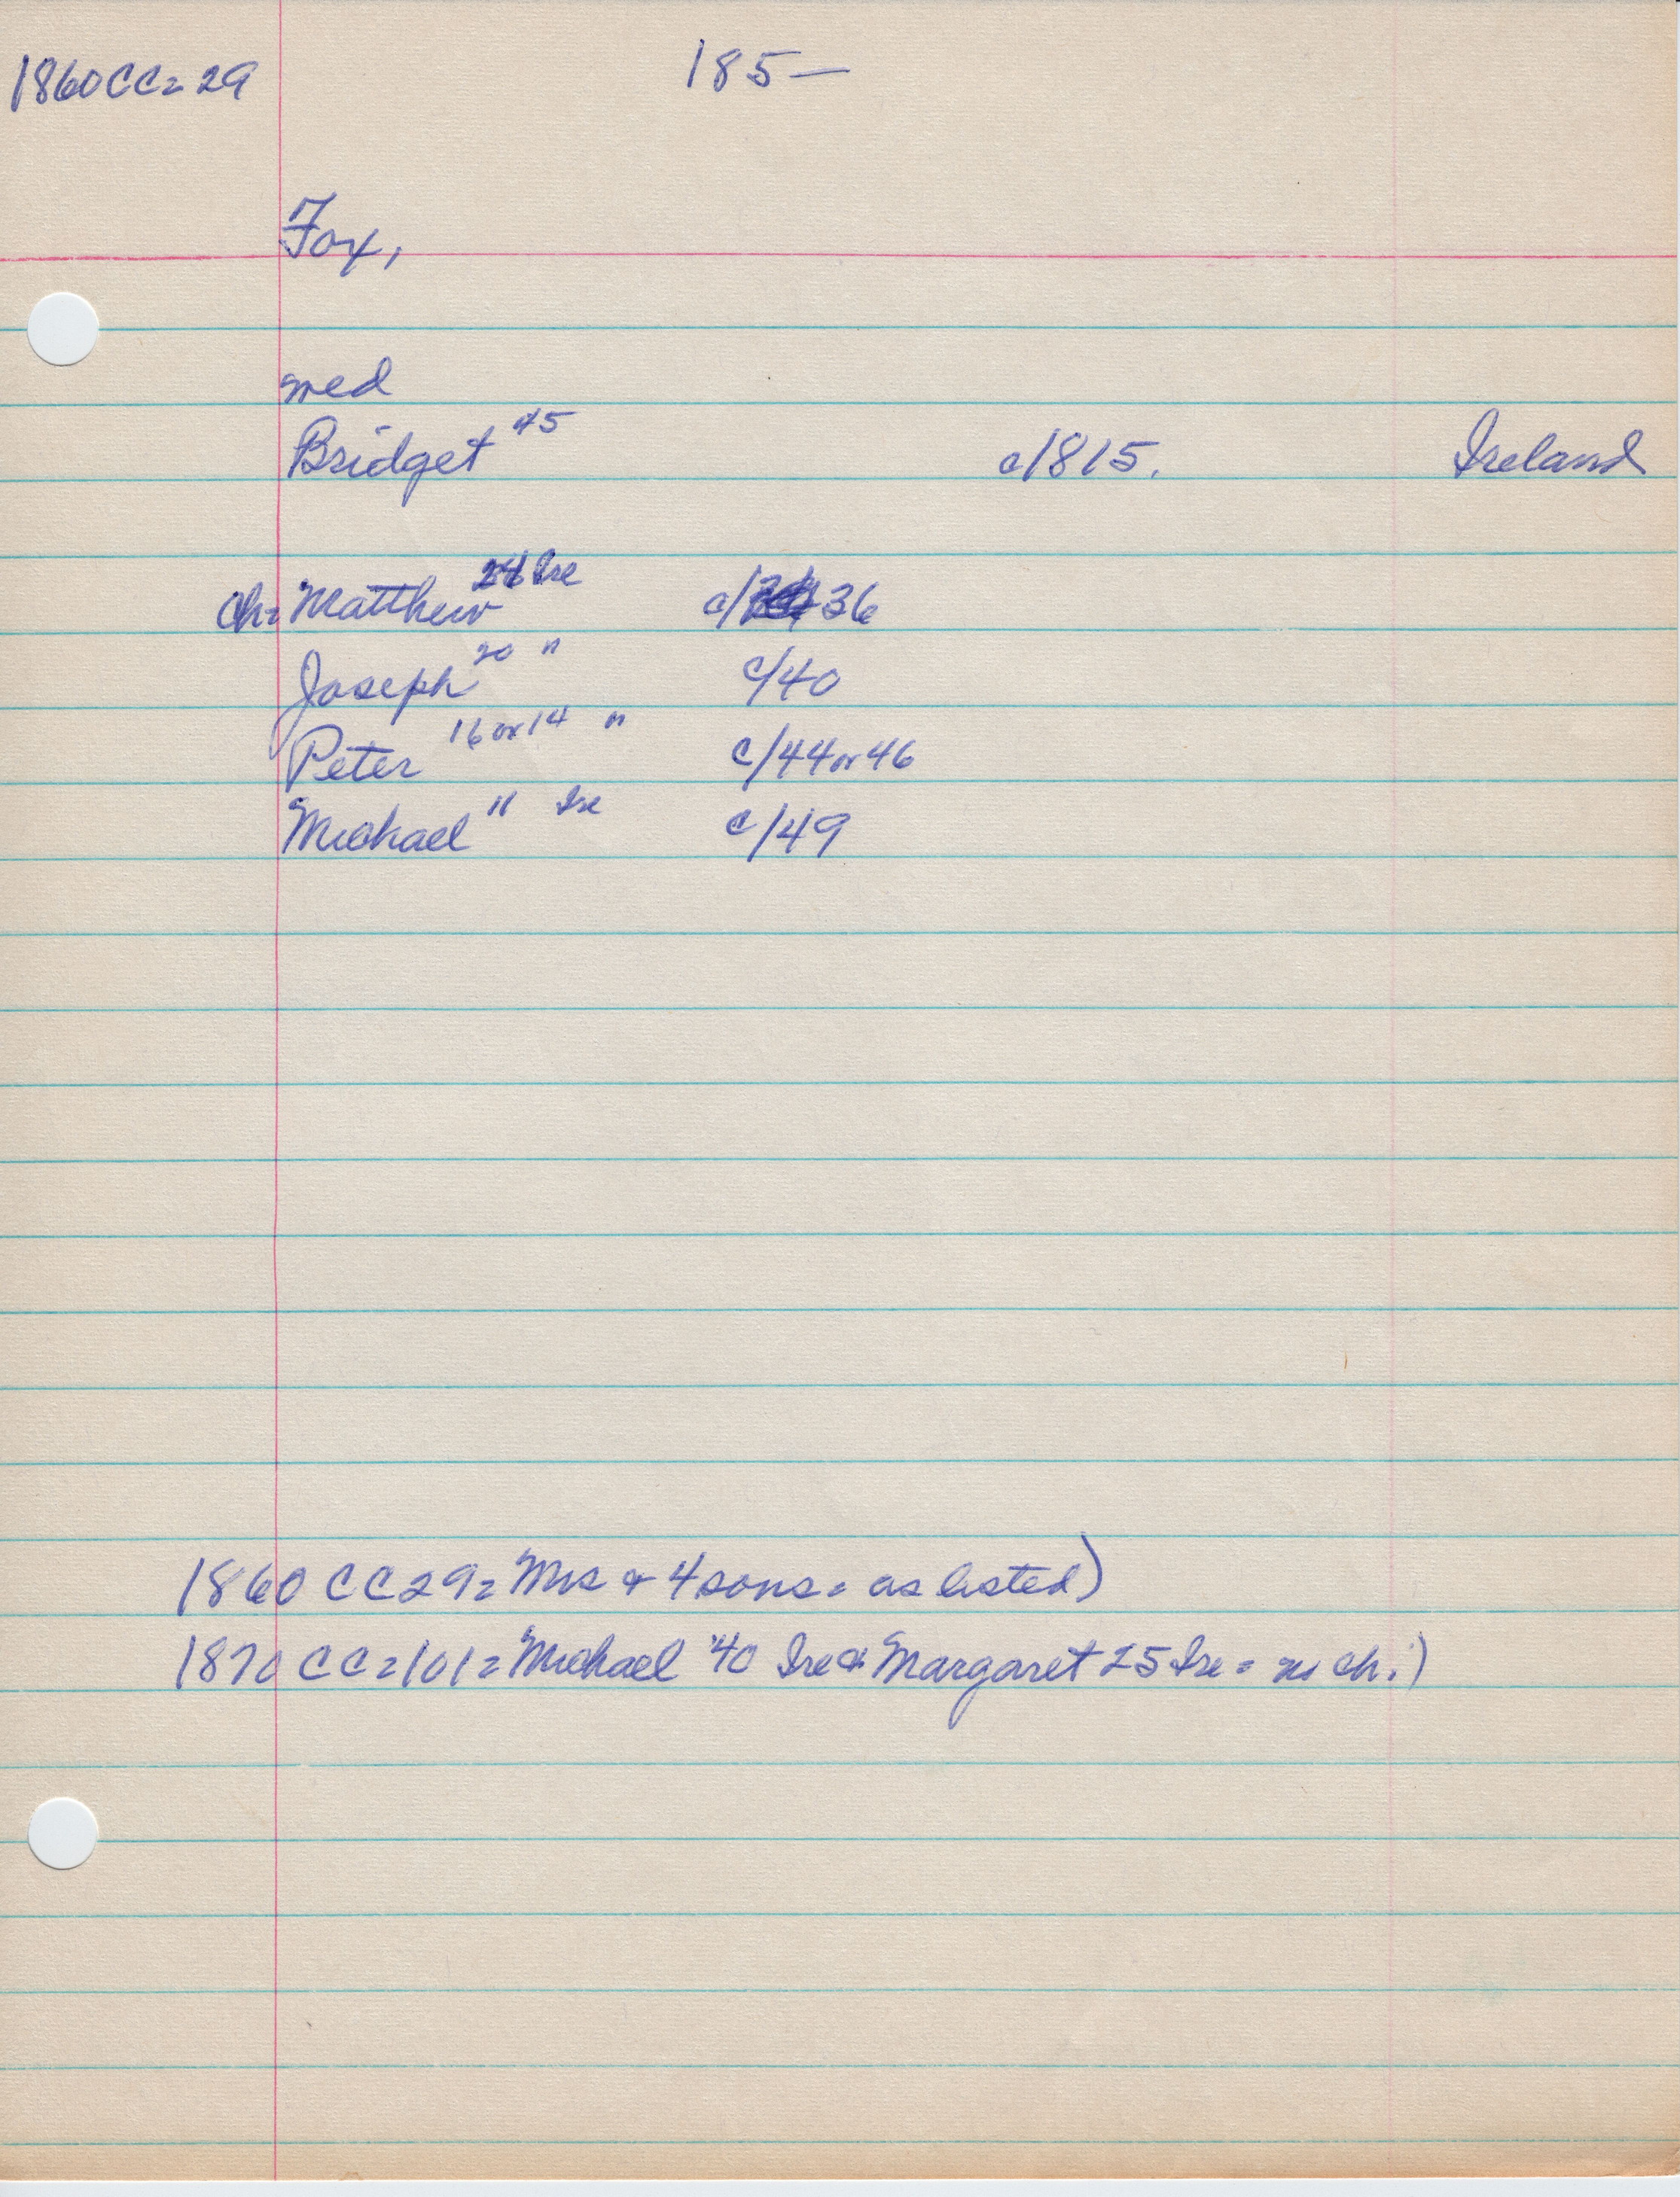 1860 CC= 29 185—
Fox,
med
Bridget 45 c/1815. Ireland
Ch= Matthew 24 Ire c/ 36
Joseph 20 " c/40
Peter 16 or 14 " c/44 or 46
Michael 11 Ire c/49
1860 CC 29= Mrs & 4 sons = as listed)
1870 CC=101= Michael 40 Ire & Margaret 25 Ire = no ch.)